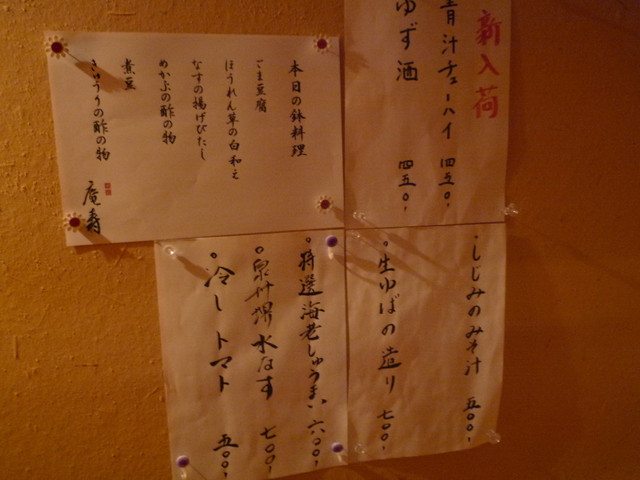 新入荷
青汁チューハイ 四五〇、
ゆず酒 四五〇、
本日の鉢料理
ごま豆腐
ほうれん草の白和え
なすの揚げびたし
めかぶの酢の物
煮豆
きゅうりの酢の物
庵寿
・しじみのみそ汁 五〇〇、
・生ゆばの造り 七〇〇、
。特選海老しゅうまい 六〇〇、
。泉州堺水なす 七〇〇、
。冷しトマト 五〇〇、